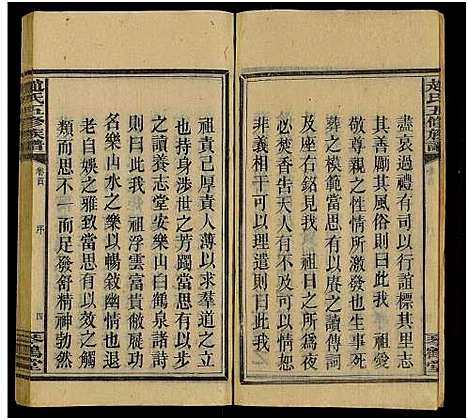 趙氏五修族譜
盡哀過禮有司以行誼標其里志
其善勵其風俗則曰此我　祖
敬尊親之性情所激發也生事死
葬之模範當思有以廣之讀傳詞
及座右銘見我　祖日之所為夜
必焚香告天人有以非禮來者卽
非義相干可以理遣則曰此我
琴鶴堂
祖責己厚責人薄以求羣道之立
也持身涉世之芳躅當思有以效
之讀養志堂安樂山白鶴泉諸詩
則曰此我　祖浮雲富貴敝屣功
名樂山水之樂以暢敘幽情也退
老自娛之雅致當思有以效之觸
類而思不一而足發舒精神勃然
趙氏五修族譜
卷首
序
四
琴鶴堂